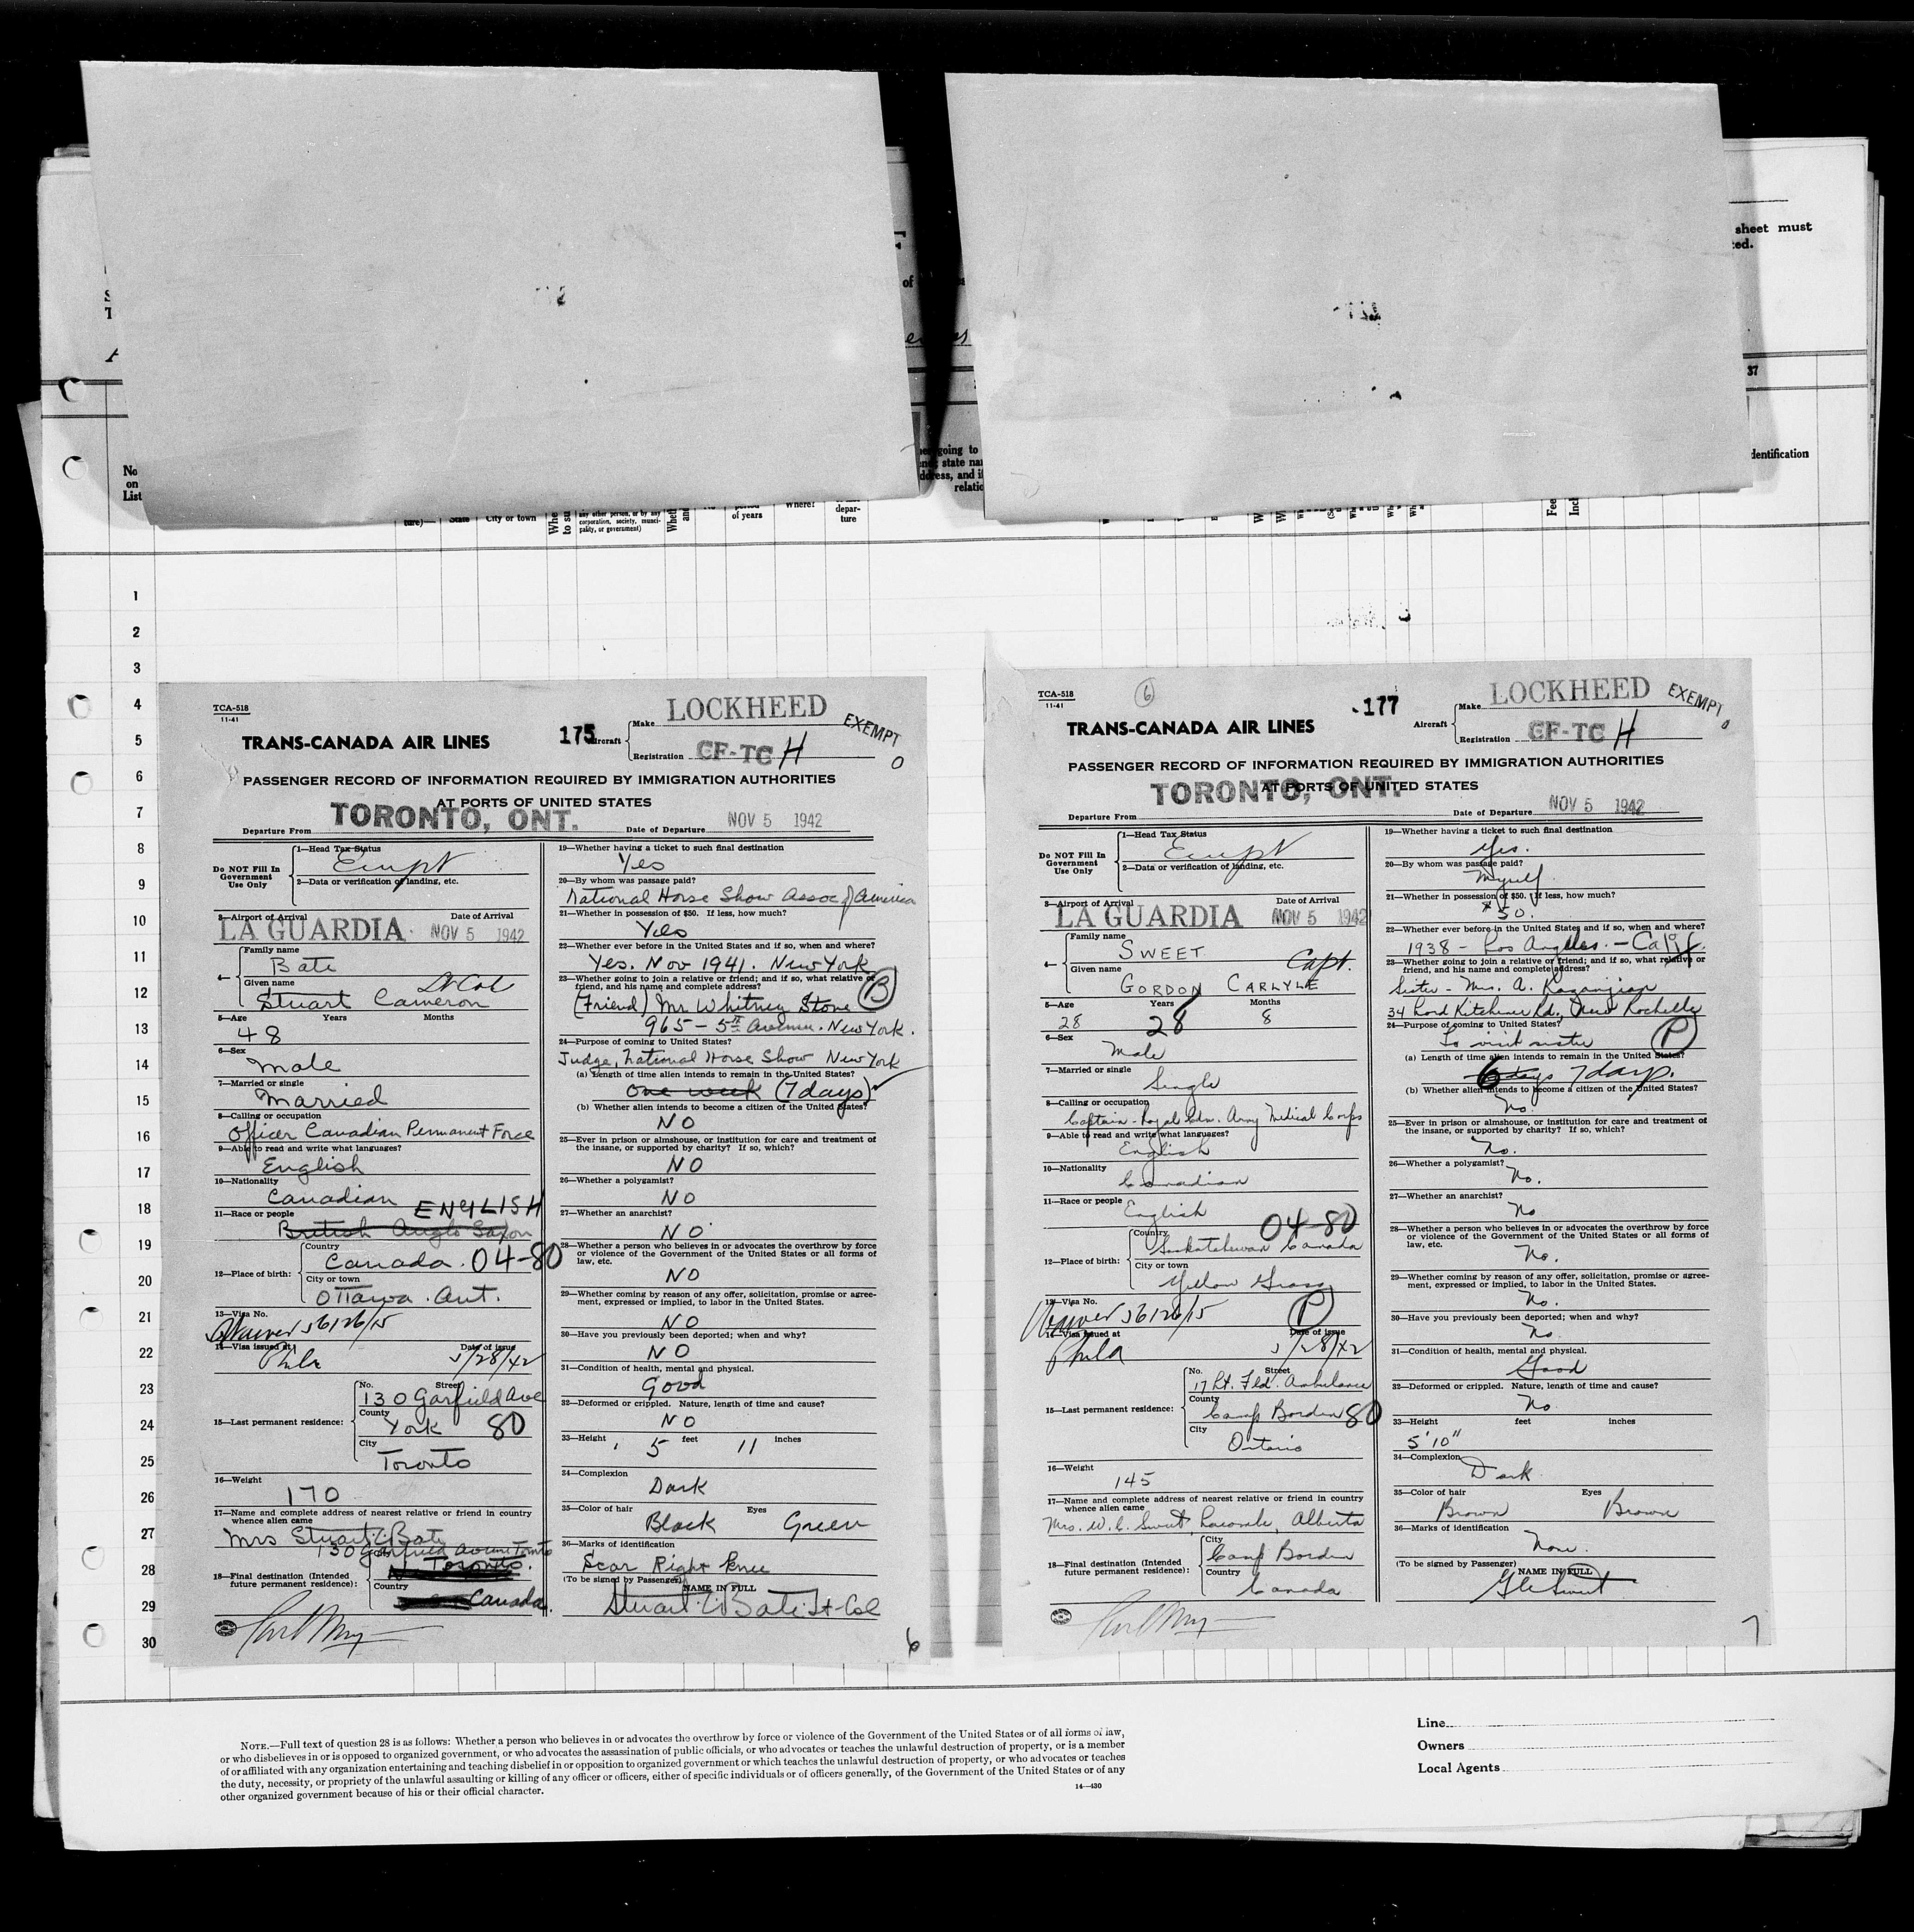 sheet must
ted.
of
37
going to
state
address, and if
relatio
dentification
No
on
List
ture)—
State
City or town
any other person, or by any
corporation, society, munici-
pality, or government)
of years
Where?
depar-
ture
1
2
3
4
5
6
7
8
9
10
11
12
13
14
15
16
17
18
19
20
21
22
23
24
25
26
27
28
29
30
TCA-518
11-41
TRANS-CANADA AIR LINES
175
Aircraft
Make LOCKHEED
Registration CF-TC H
EXEMPT
0
PASSENGER RECORD OF INFORMATION REQUIRED BY IMMIGRATION AUTHORITIES
AT PORTS OF UNITED STATES
Departure From TORONTO, ONT. Date of Departure NOV 5 1942
Do NOT Fill In
Government
Use Only
1—Head Tax Status
Exmpt
2—Data or verification of landing, etc.
3—Airport of Arrival Date of Arrival
LA GUARDIA NOV 5 1942
4—
Family name
Bate
Given name Lt Col
Stuart Cameron
5—Age Years Months
48
6—Sex
Male
7—Married or single
Married
8—Calling or occupation
Officer Canadian Permanent Force
9—Able to read and write what languages?
English
10—Nationality
Canadian ENGLISH
11—Race or people
British Anglo Saxon
12—Place of birth:
Country
Canada. 04-80
City or town
Ottawa. Ont.
13—Visa No.
Waiver 56126/15
14—Visa issued at Date of issue
Phila 5/28/42
15—Last permanent residence:
No. Street
130 Garfield Ave
County
York 80
City
Toronto
16—Weight
170
17—Name and complete address of nearest relative or friend in country
whence alien came
Mrs Stuart C. Bate
130 Garfield Avenue Toronto
18—Final destination (Intended
future permanent residence):
City
Toronto.
Country
Canada.
19—Whether having a ticket to such final destination
Yes
20—By whom was passage paid?
National Horse Show Assoc of America
21—Whether in possession of $50. If less, how much?
Yes
22—Whether ever before in the United States and if so, when and where?
Yes. Nov 1941. New York
23—Whether going to join a relative or friend; and if so, what relative or
friend, and his name and complete address?
(Friend) Mr Whitney Stone
965 - 5th Avenue. New York.
24—Purpose of coming to United States?
Judge, National Horse Show New York
(a) Length of time alien intends to remain in the United States?
One week (7 days)
(b) Whether alien intends to become a citizen of the United States?
NO
25—Ever in prison or almshouse, or institution for care and treatment of
the insane, or supported by charity? If so, which?
NO
26—Whether a polygamist?
NO
27—Whether an anarchist?
NO
28—Whether a person who believes in or advocates the overthrow by force
or violence of the Government of the United States or all forms of
law, etc.
NO
29—Whether coming by reason of any offer, solicitation, promise or agree-
ment, expressed or implied, to labor in the United States.
NO
30—Have you previously been deported; when and why?
NO
31—Condition of health, mental and physical.
Good
32—Deformed or crippled. Nature, length of time and cause?
NO
33—Height 5 feet 11 inches
34—Complexion
Dark
35—Color of hair Eyes
Black Green
36—Marks of identification
Scar Right knee
(To be signed by Passenger)
NAME IN FULL
Stuart C Bate Lt-Col
6
TCA-518
11-41
6
TRANS-CANADA AIR LINES
177
Aircraft
Make LOCKHEED
Registration CF-TC H
EXEMPT
0
PASSENGER RECORD OF INFORMATION REQUIRED BY IMMIGRATION AUTHORITIES
AT PORTS OF UNITED STATES
Departure From TORONTO, ONT. Date of Departure NOV 5 1942
Do NOT Fill In
Government
Use Only
1—Head Tax Status
Exmpt
2—Data or verification of landing, etc.
3—Airport of Arrival Date of Arrival
LA GUARDIA NOV 5 1942
4—
Family name
SWEET
Given name Capt.
GORDON CARLYLE
5—Age Years Months
28 28 8
6—Sex
Male
7—Married or single
Single
8—Calling or occupation
Captain - Royal Cdn. Army Medical Corps
9—Able to read and write what languages?
English
10—Nationality
Canadian
11—Race or people
English
04-80
12—Place of birth:
Country
Saskatchewan Canada
City or town
Yellow Grass
13—Visa No.
Waiver 56126/15 P
14—Visa issued at Date of issue
Phila 5/28/42
15—Last permanent residence:
No. Street
17 Lt. Fld. Ambulance
County
Camp Borden 80
City
Ontario
16—Weight
145
17—Name and complete address of nearest relative or friend in country
whence alien came
Mrs. W. C. Sweet, Lacombe, Alberta
18—Final destination (Intended
future permanent residence):
City
Camp Borden
Country
Canada
19—Whether having a ticket to such final destination
Yes.
20—By whom was passage paid?
Myself.
21—Whether in possession of $50. If less, how much?
$50.
22—Whether ever before in the United States and if so, when and where?
1938 - Los Angeles. - Calif.
23—Whether going to join a relative or friend; and if so, what relative or
friend, and his name and complete address?
Sister - Mrs. A. Kazanjian
34 Lord Kitchener Rd., New Rochelle
24—Purpose of coming to United States?
To visit sister P
(a) Length of time alien intends to remain in the United States?
6 days 7 days.
(b) Whether alien intends to become a citizen of the United States?
No.
25—Ever in prison or almshouse, or institution for care and treatment of
the insane, or supported by charity? If so, which?
No.
26—Whether a polygamist?
No.
27—Whether an anarchist?
No
28—Whether a person who believes in or advocates the overthrow by force
or violence of the Government of the United States or all forms of
law, etc.
No.
29—Whether coming by reason of any offer, solicitation, promise or agree-
ment, expressed or implied, to labor in the United States.
No.
30—Have you previously been deported; when and why?
No
31—Condition of health, mental and physical.
Good
32—Deformed or crippled. Nature, length of time and cause?
No
33—Height feet inches
5'10"
34—Complexion
Dark
35—Color of hair Eyes
Brown Brown
36—Marks of identification
None.
(To be signed by Passenger)
NAME IN FULL
G C Sweet
7
NOTE.—Full text of question 28 is as follows: Whether a person who believes in or advocates the overthrow by force or violence of the Government of the United States or of all forms of law,
or who disbelieves in or is opposed to organized government, or who advocates the assassination of public officials, or who advocates or teaches the unlawful destruction of property, or is a member
of or affiliated with any organization entertaining and teaching disbelief in or opposition to organized government or which teaches the unlawful destruction of property, or who advocates or teaches
the duty, necessity, or propriety of the unlawful assaulting or killing of any officer or officers, either of specific individuals or of officers generally, of the Government of the United States or of any
other organized government because of his or their official character.
14—430
Line
Owners
Local Agents